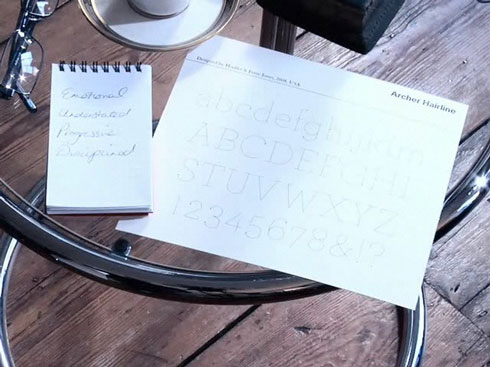 Emotional
Understated
Progressive
Disciplined
Designed by Hoefler & Frere-Jones, 2008, USA
Archer Hairline
abcdefghijklm
ABCDEFGHI
STUVWXYZ
12345678&!?